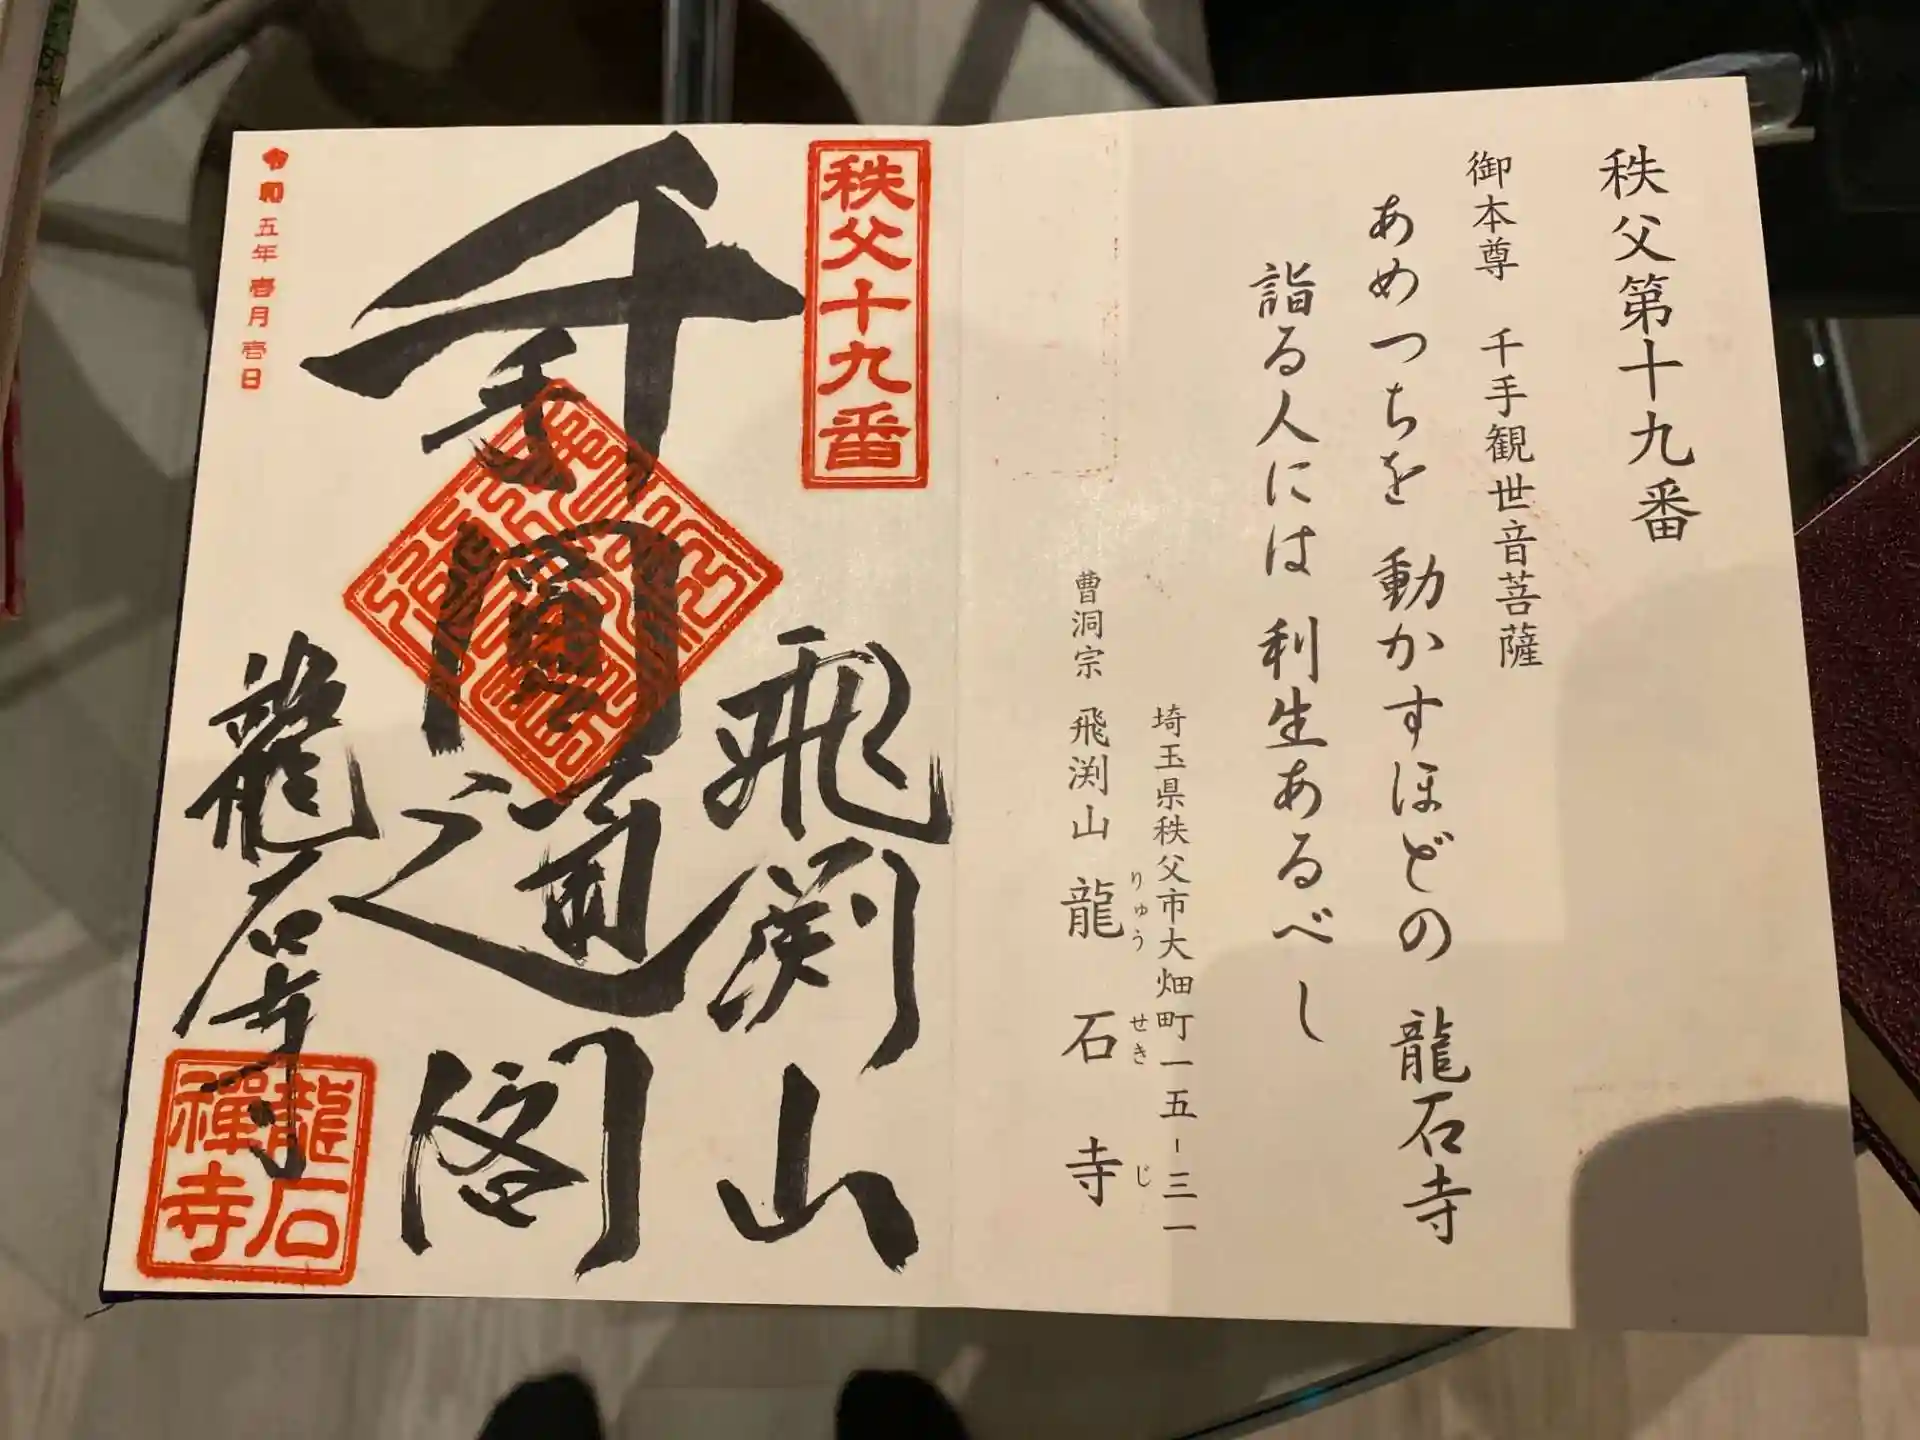 秩父第十九番
御本尊 千手観世音菩薩
あめつちを 動かすほどの 龍石寺
詣る人には 利生あるべし
埼玉県秩父市大畑町一五-三一
曹洞宗 飛渕山 龍石寺
りゅう せき じ
秩父十九番
飛渕山
千手
圓通閣
龍石寺
龍石禅寺
令和五年壱月壱日